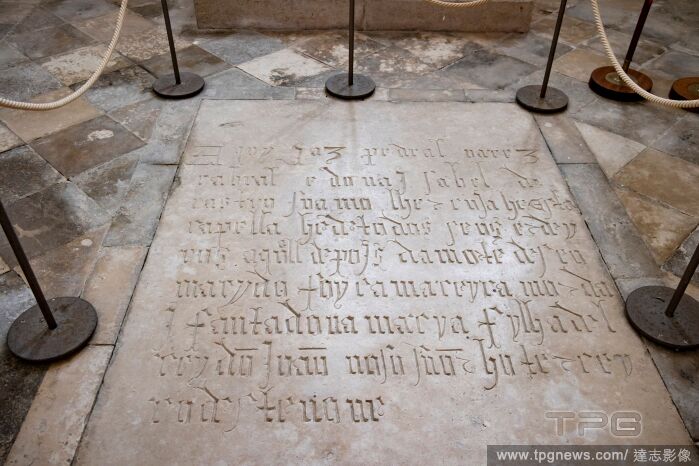 Aquy Jaz pedralvarez
cabral e dona Jsabel de
castro sua molher cuja he esta
capella he de todos seus erdey
ros aquall depojs da morte de seu
marydo foy camareyra mor da
Jfanta dona marya fylha del
rey dõ Juam noso sñor hu tercey
ro deste
TPG
www.tpgnews.com/ 達志影像